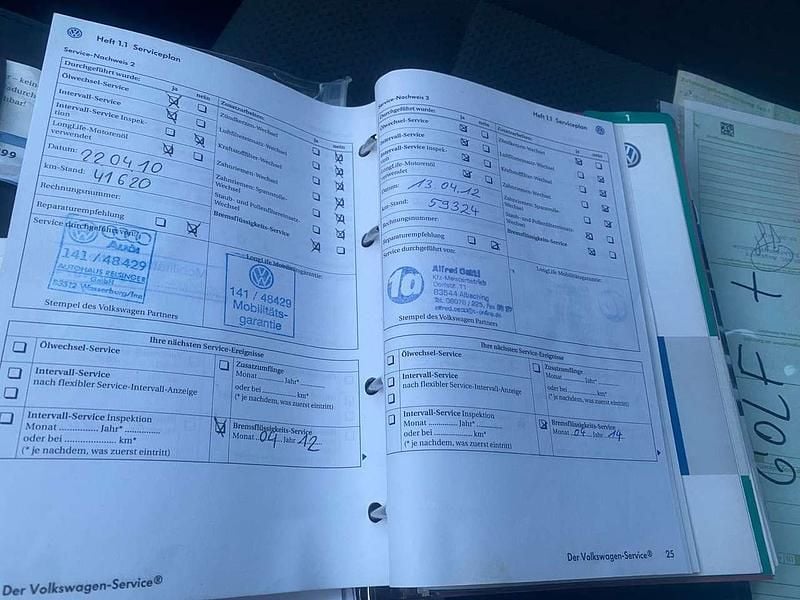 Heft 1.1 Serviceplan
Service-Nachweis 2
Durchgeführt wurde:
ja
nein
Ölwechsel-Service
Intervall-Service
Intervall-Service Inspek-
tion
LongLife-Motorenöl
verwendet
Datum: 22 04 10
km-Stand: 41620
Rechnungsnummer:
Reparaturempfehlung
Service durchgeführt von:
Audi
141 / 48429
AUTOHAUS REISINGER
GmbH
83512 Wasserburg/Inn
Stempel des Volkswagen Partners
Zusatzarbeiten:
ja
nein
Zündkerzen-Wechsel
Luftfiltereinsatz-Wechsel
Kraftstofffilter-Wechsel
Zahnriemen-Wechsel
Zahnriemen-Spannrolle-
Wechsel
Staub- und Pollenfiltereinsatz-
Wechsel
Bremsflüssigkeits-Service
LongLife Mobilitätsgarantie:
141 / 48429
Mobilitäts-
garantie
Ihre nächsten Service-Ereignisse
Ölwechsel-Service
Intervall-Service
nach flexibler Service-Intervall-Anzeige
Intervall-Service Inspektion
Monat ............. Jahr* .............
oder bei ............. km*
(* je nachdem, was zuerst eintritt)
Zusatzumfänge
Monat ............. Jahr* .............
oder bei ............. km*
(* je nachdem, was zuerst eintritt)
Bremsflüssigkeits-Service
Monat 04 Jahr 12
Der Volkswagen-Service®
Service-Nachweis 3
Heft 1.1 Serviceplan
Durchgeführt wurde:
ja
nein
Ölwechsel-Service
Intervall-Service
Intervall-Service Inspek-
tion
LongLife-Motorenöl
verwendet
Datum: 13.04.12
km-Stand: 59324
Rechnungsnummer:
Reparaturempfehlung
Service durchgeführt von:
10
Kfz-Meisterbetrieb
Dorfstr. 11
Stempel des Volkswagen Partners
Zusatzarbeiten:
ja
nein
Zündkerzen-Wechsel
Luftfiltereinsatz-Wechsel
Kraftstofffilter-Wechsel
Zahnriemen-Wechsel
Zahnriemen-Spannrolle-
Wechsel
Staub- und Pollenfiltereinsatz-
Wechsel
Bremsflüssigkeits-Service
LongLife Mobilitätsgarantie:
Ihre nächsten Service-Ereignisse
Ölwechsel-Service
Intervall-Service
nach flexibler Service-Intervall-Anzeige
Intervall-Service Inspektion
Monat ............. Jahr* .............
oder bei ............. km*
(* je nachdem, was zuerst eintritt)
Zusatzumfänge
Monat ............. Jahr* .............
oder bei ............. km*
(* je nachdem, was zuerst eintritt)
Bremsflüssigkeits-Service
Monat 04 Jahr 14
Der Volkswagen-Service® 25
1
GOLF +